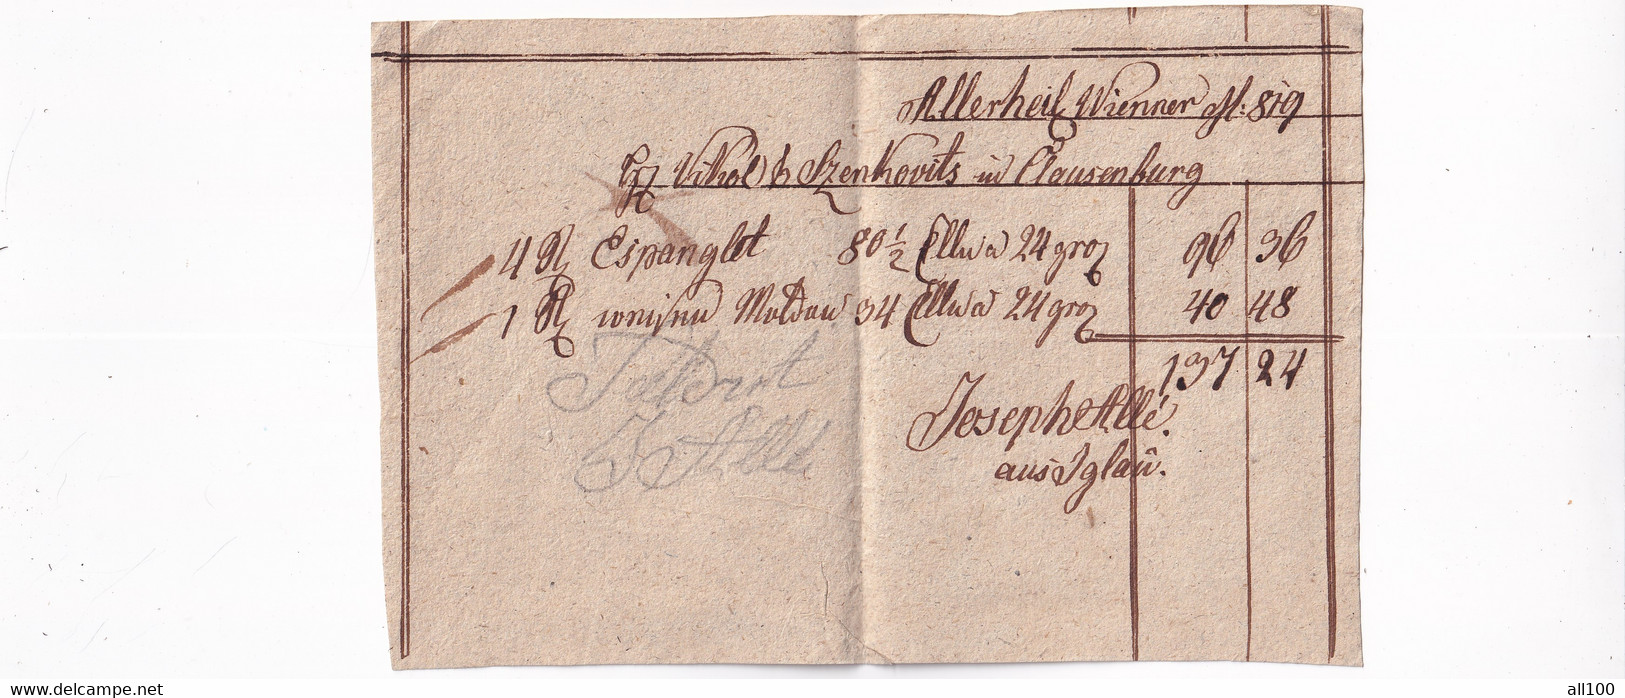 Allerheil Wienner M: 819
Vikol & Szenkovits in Clausenburg
4 Espanglet 80 1/2 Elln a 24 gro 96 36
1 weisen Moldau 34 Elln a 24 gro 40 48
137 24
Joseph Allé.
aus Iglaû.
J Allé
all100